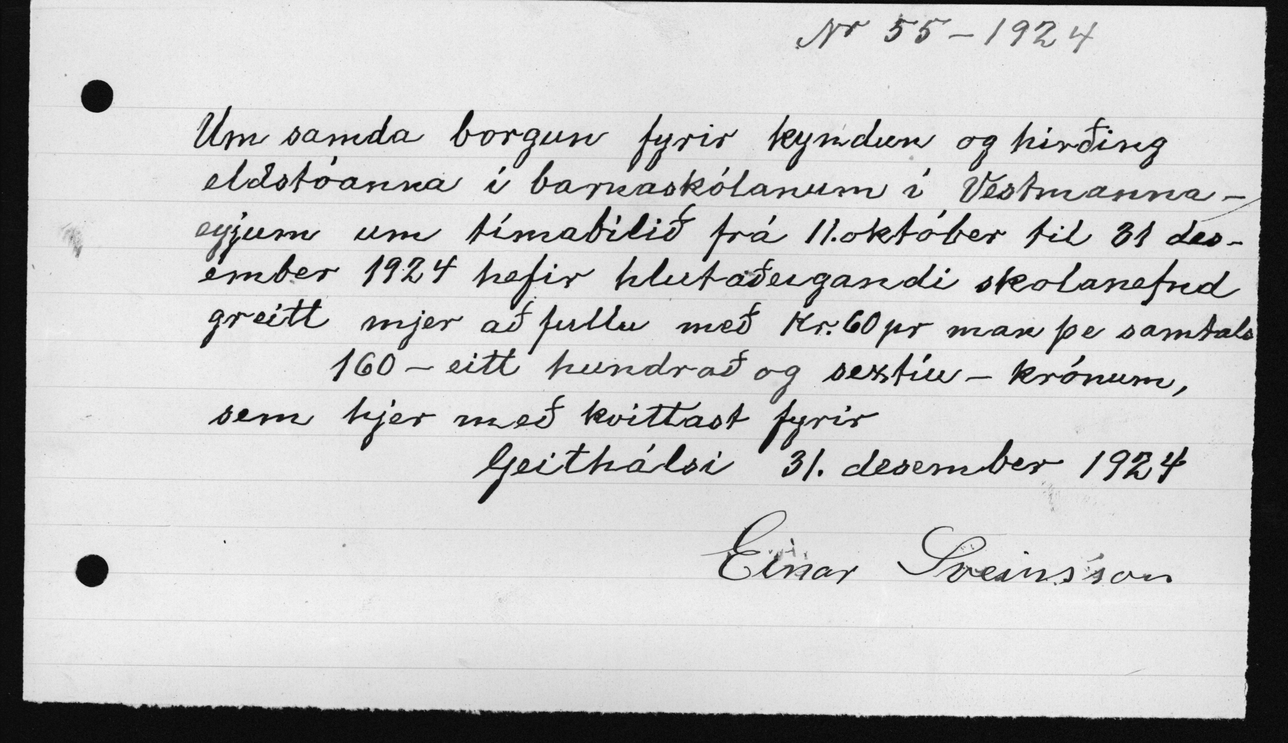 Nr 55-1924
Um samda borgun fyrir kyndun og hirðing
eldstóanna í barnaskólanum í Vestmanna-
eyjum um tímabilið frá 11. október til 31 des-
ember 1924 hefir hlutaðeigandi skolanefnd
greitt mjer að fullu með Kr. 60 pr man þe samtals
160 - eitt hundrað og sextíu - krónum,
sem hjer með kvittast fyrir
Geithálsi 31. desember 1924
Einar Sveinsson